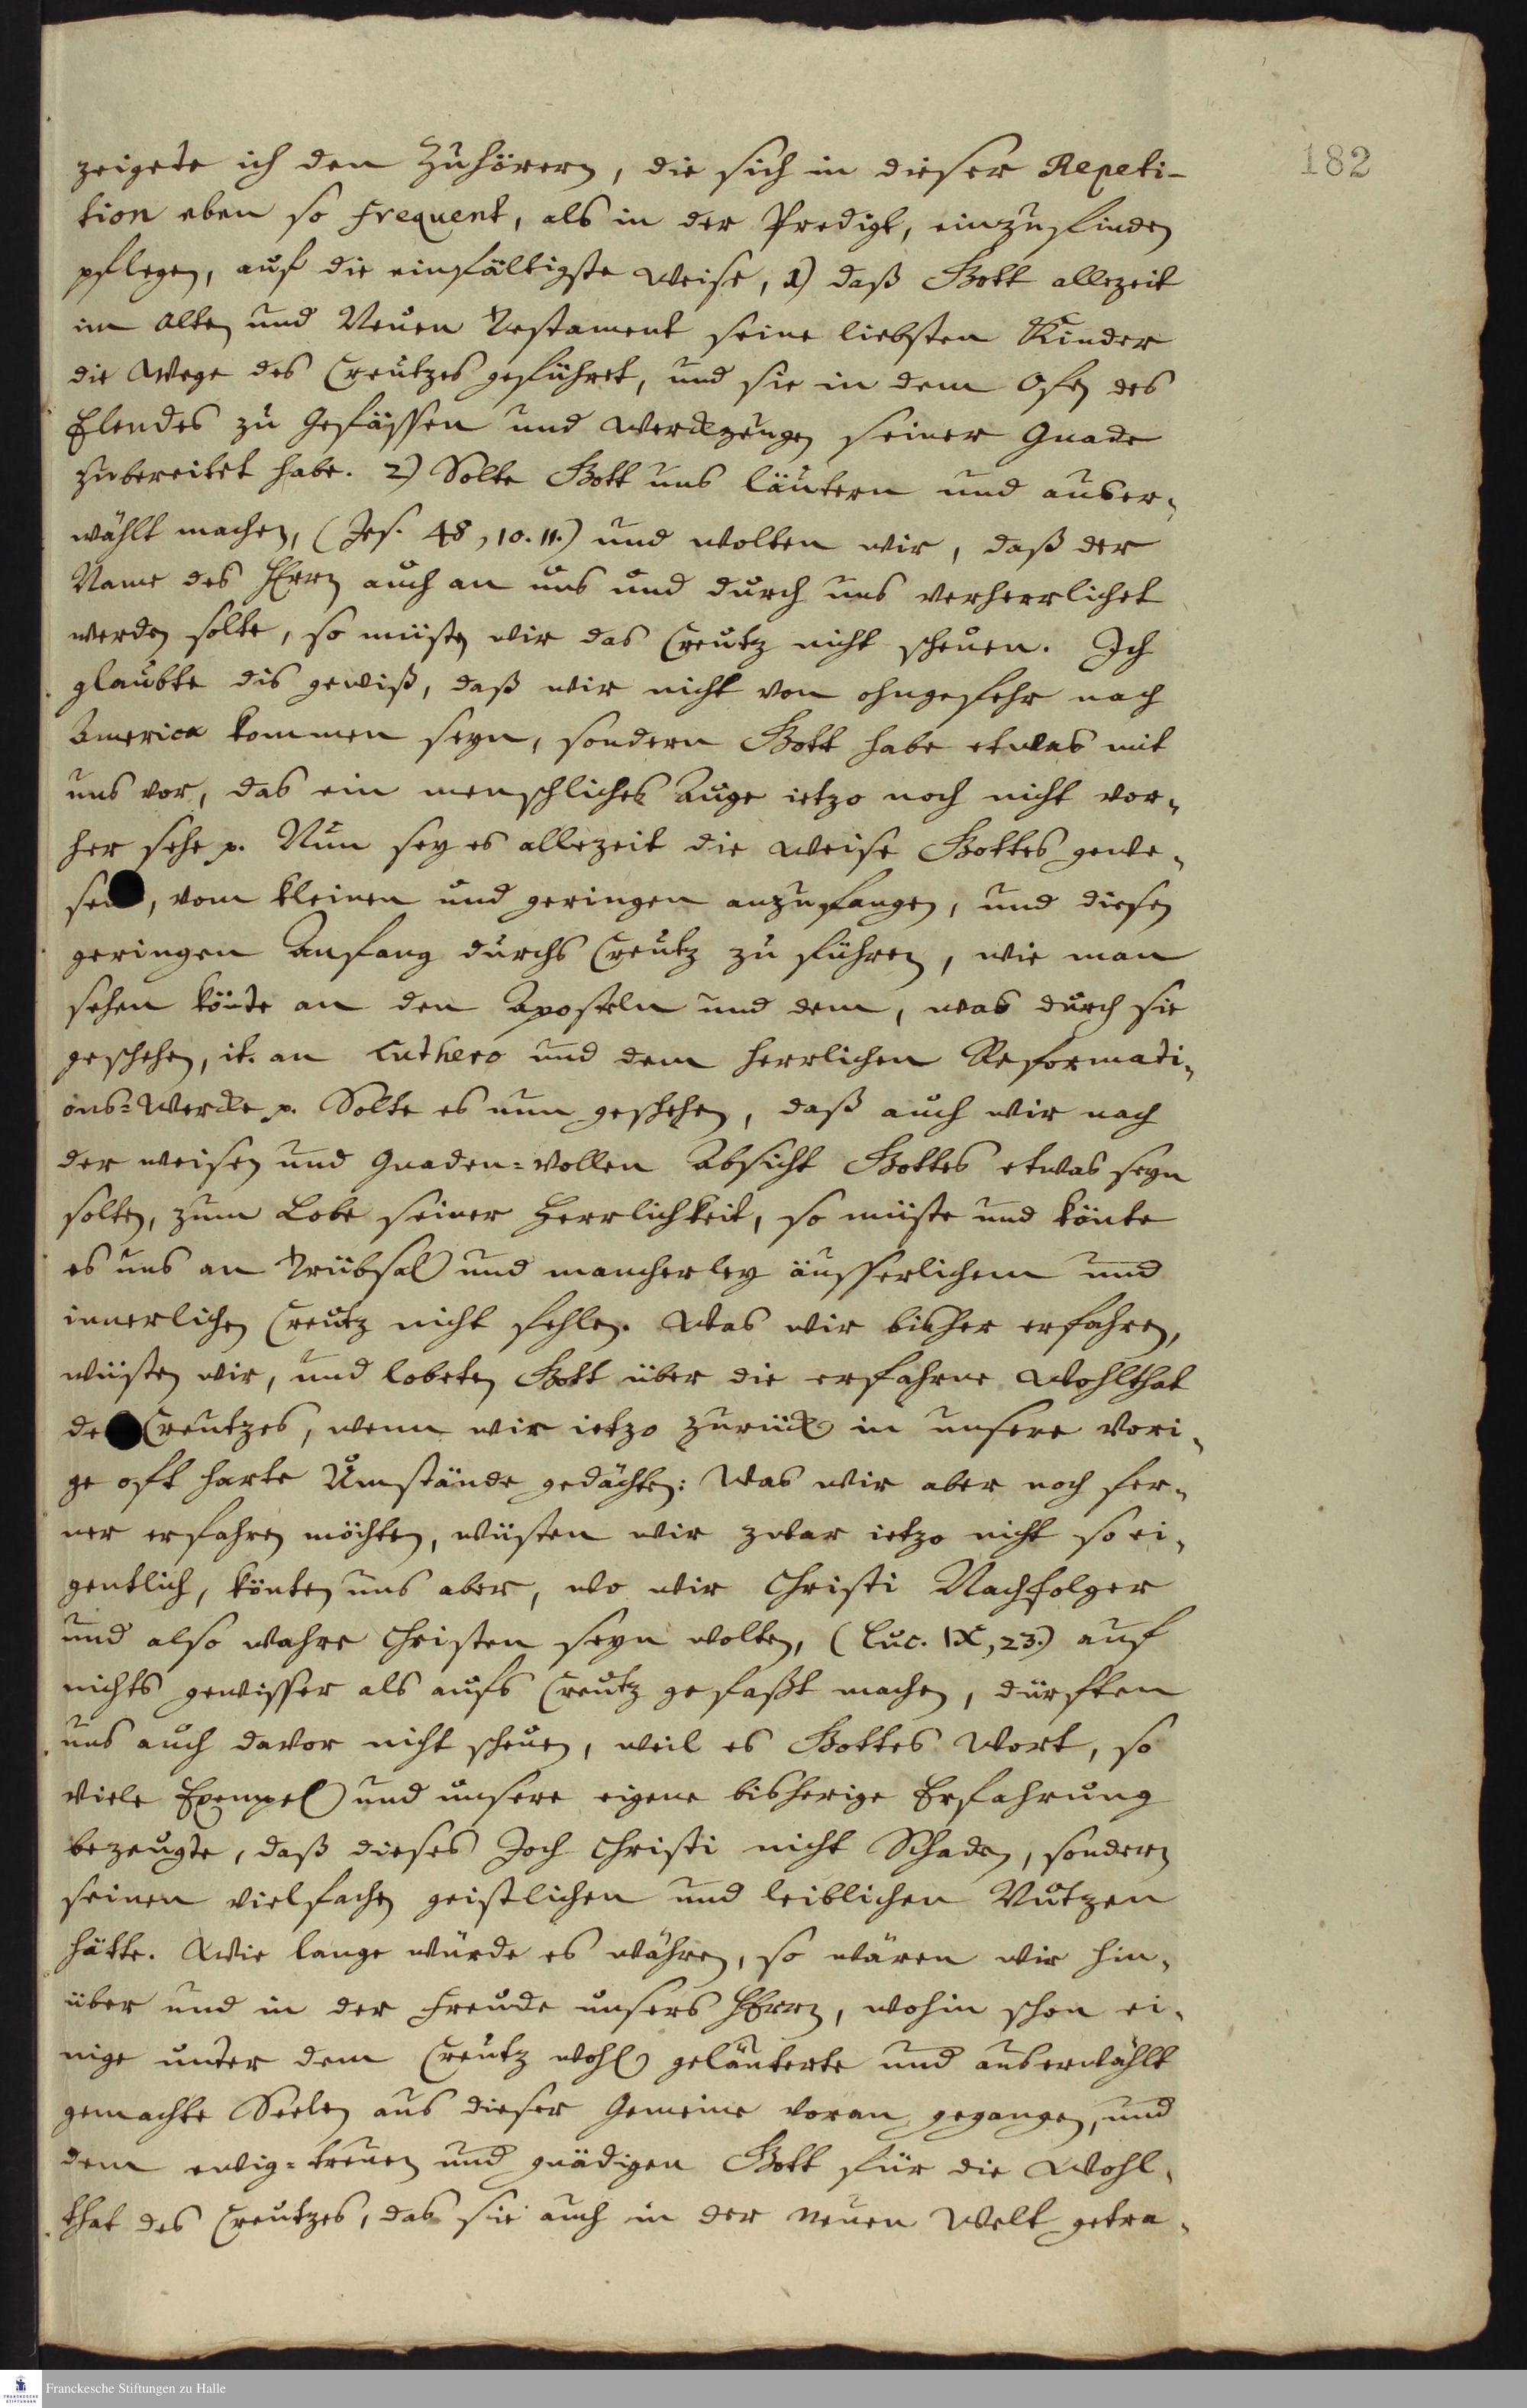 182
zeigete ich den Zuhörern, die sich in dieser Repeti-
tion eben so frequent, als in der Predigt, einzufinden
pflegen, auf die einfältigste Weise, 1) daß Gott allezeit
im Alten und Neuen Testament seine liebsten Kinder
die Wege des Creutzes geführet, und sie in dem Ofen des
Elendes zu Gefässen und Werckzeugen seiner Gnade
zubereitet habe. 2) Solte Gott uns läutern und auser-
wählt machen, (Jes. 48, 10. 11.) und wolten wir, daß der
Name des HErrn auch an uns und durch uns verherrlichet
werden solte, so müsten wir das Creutz nicht scheuen. Ich
glaubte dis gewiß, daß wir nicht von ohngefehr nach
America kommen seyn, sondern Gott habe etwas mit
uns vor, das ein menschliches Auge ietzo noch nicht vor-
her sehe p. Nun sey es allezeit die Weise Gottes gewe-
sen, vom kleinen und geringen anzufangen, und diesen
geringen Anfang durchs Creutz zu führen, wie man
sehen könte an den Aposteln und dem, was durch sie
geschehen, it. an Luthero und dem herrlichen Reformati-
ons=Wercke p. Solte es nun geschehen, daß auch wir nach
der weisen und Gnaden=vollen Absicht Gottes etwas seyn
solten, zum Lobe seiner Herrlichkeit, so müste und könte
es uns an Trübsal und mancherley äusserlichem und
innerlichen Creutz nicht fehlen. Was wir bisher erfahren,
wüsten wir, und lobeten Gott über die erfahrne Wohlthat
des Creutzes, wenn wir ietzo zurück in unsere vori-
ge oft harte Umstände gedächten: Was wir aber noch fer-
ner erfahren möchten, wüsten wir zwar ietzo nicht so ei-
gentlich, könten uns aber, wo wir Christi Nachfolger
und also wahre Christen seyn wolten, (Luc. IX, 23.) auf
nichts gewisser als aufs Creutz gefaßt machen, dürften
uns auch davor nicht scheuen, weil es Gottes Wort, so
viele Exempel und unsere eigene bisherige Erfahrung
bezeugte, daß dieses Joch Christi nicht Schaden, sondern
seinen vielfachen geistlichen und leiblichen Nutzen
hätte. Wie lange würde es währen, so wären wir hin-
über und in der Freude unsers HErrn, wohin schon ei-
nige unter dem Creutz wohl geläuterte und auserwählt
gemachte Seelen aus dieser Gemeine voran gegangen, und
dem ewig=treuen und gnädigen Gott für die Wohl-
that des Creutzes, das sie auch in der neuen Welt getra-
Franckesche Stiftungen zu Halle